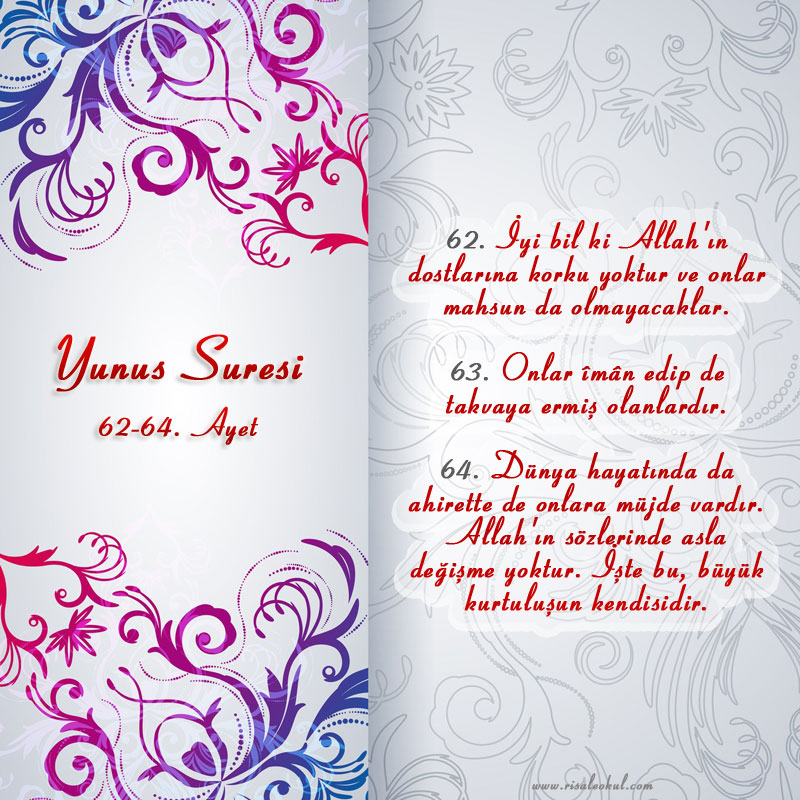 Yunus Suresi
62-64. Ayet
62. İyi bil ki Allah'ın
dostlarına korku yoktur ve onlar
mahsun da olmayacaklar.
63. Onlar îmân edip de
takvaya ermiş olanlardır.
64. Dünya hayatında da
ahirette de onlara müjde vardır.
Allah'ın sözlerinde asla
değişme yoktur. İşte bu, büyük
kurtuluşun kendisidir.
www.risaleokul.com